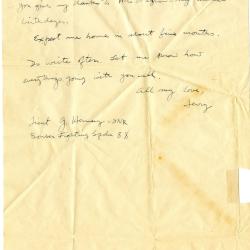 you give my thanks to
birthdays.
Expect me home in about four months.
Do write often. Let me know how
everything's going with you all.
All my love,
Jerry
Lieut G. USNR
Fighting Sqdn 88